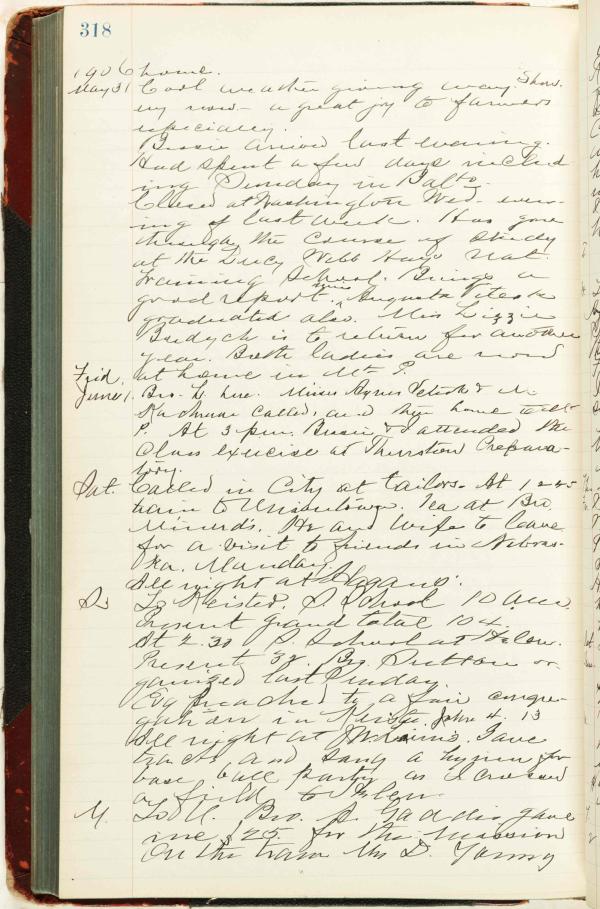 318
1906 home.
May 31 Cool weather giving way. Show.
ing now - a great joy to farmers
especially.
Bessie arrived last evening.
Had spent a few days includ
ing Sunday in Balto.
Closed at Washington Wed. even-
ing of last week. Has gone
through the course of study
at the Lucy Webb Hays Nat.
Training School. Brings a
good report. Augusta
graduated also. Miss Lizzie
is to return for another
year. Both ladies are now
Frid. at home in Mt P.
June 1. Bro. L. here. Misses Agnes &
called, and then home to Mt
P. At 3 p.m. Bessie & I attended the
Class exercise at Thurston Prepara-
tory.
Sat. Called in City at tailors. At 12.45
train to Uniontown. Tea at Bro.
Minerd's. He and Wife to leave
for a visit to friends in Nebras-
ka. Monday.
All night at Hagans'.
S. To Keister. S. School 10 a.m.
Present grand total 104.
At 2.30 S. School at
Present 38. Bro. or
ganized last Sunday
Evg preached to a fair congre-
gation in John 4. 13
All night at Gave
tracts and sang a hymn for
base ball party as I crossed
a field to
M. To U. Bro. S. Gaddis gave
me $25 for the Mission
On the train Mr D. Young